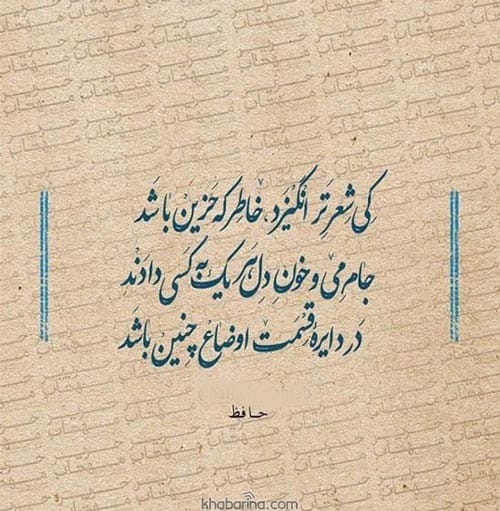 کی شِعرِ تَر انگیزد، خاطر که حَزین باشَد
جامِ می و خونِ دِل هَر یک به کَسی دادَند
دَر دایرهٔ قِسْمَت اوضاع چنین باشَد
حافظ
khabarina.com